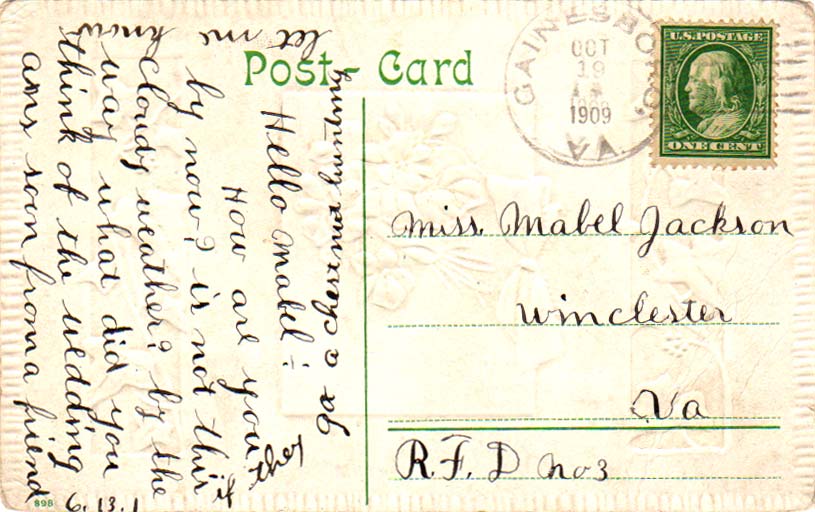 Post-Card
GAINESBORO,
OCT
19
1909
VA.
U.S. POSTAGE
ONE CENT
Miss. Mabel Jackson
Winchester
Va
R. F. D no 3
Hello Mabel:
How are you
by now? is not this
cloudy weather? by the
way what did you
think of the wedding
ans soon from a friend
let me know
if they
go a chesnut hunting
898